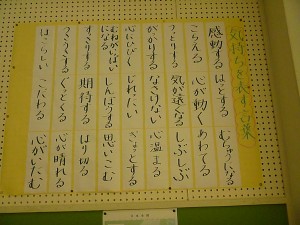 気持ちを表す言葉
感動する はっとする むちゅうになる
こらえる 心が動く あわてる
うっとりする 気が遠くなる しぶしぶ
がっかりする なさけない 心温まる
心にひびく じれったい ぎょっとする
むねがいっぱいになる しんぼうする 思いこむ
すっきりする 期待する はり切る
うっとうしい ぐっとくる 心が晴れる
ほこらしい こだわる 心がいたむ